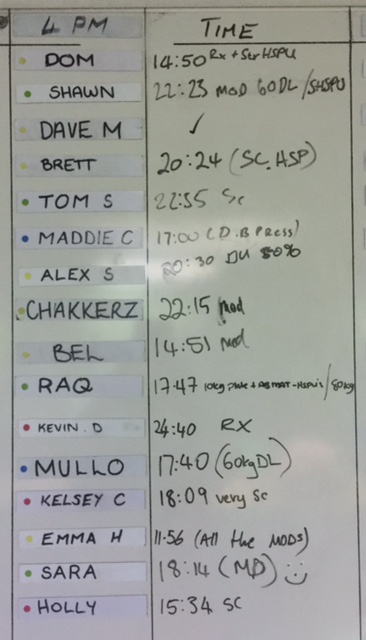 4 PM TIME
DOM 14:50 Rx + Str HSPU
SHAWN 22:23 MOD 60DL/SHSPU
DAVE M ✓
BRETT 20:24 (SC. HSP)
TOM S 22:55 Sc
MADDIE C 17:00 (D.B PRess)
ALEX S 20:30 DU 50%
CHAKKERZ 22:15 Mod
BEL 14:51 Mod
RAQ 17:47 10kg plate + ABMAT-HSPU's/80kg
KEVIN. D 24:40 RX
MULLO 17:40 (60kgDL)
KELSEY C 18:09 very Sc
EMMA H 11.56 (All the MODs)
SARA 18:14 (MD)
HOLLY 15:34 SC